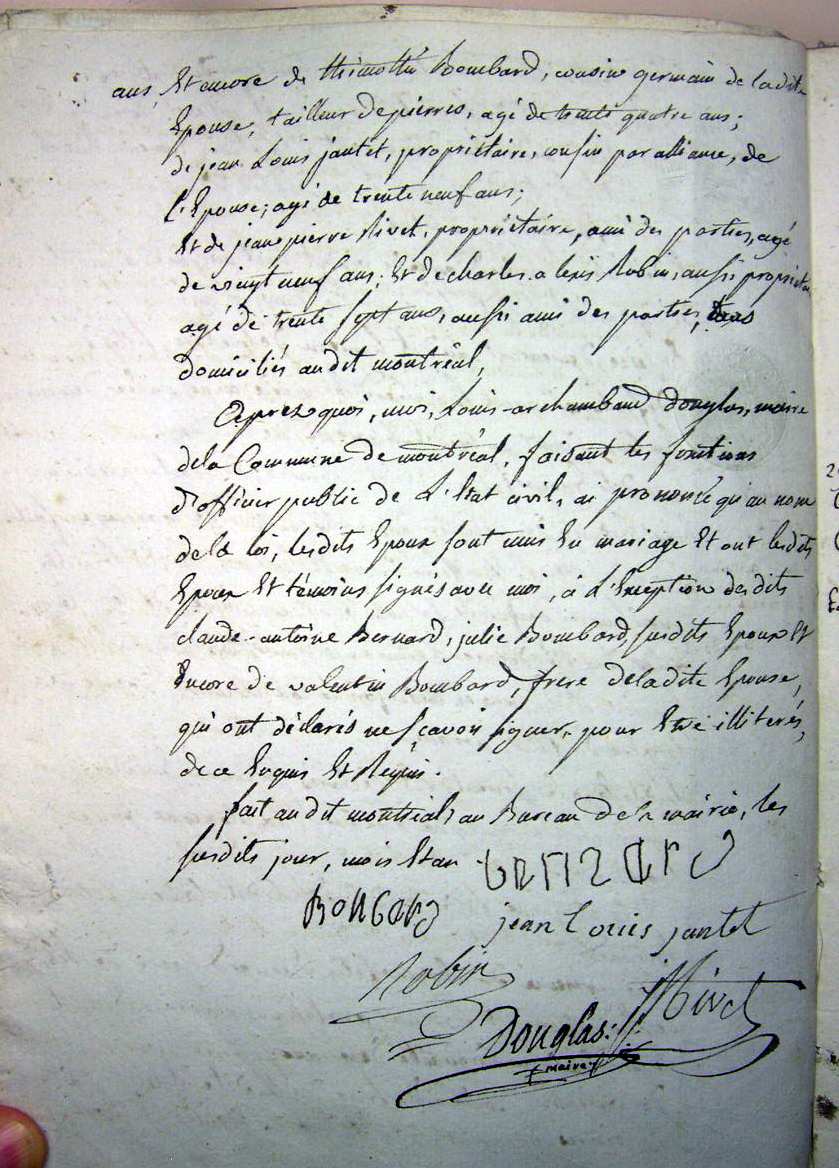 ans, Et encore de thimothé Bombard, cousin germain de ladite
Epouse, tailleur de pierres, agé de trente quatre ans;
de jean Louis jantet, propriétaire, cousin par alliance, de
l'Epouse; agé de trente neuf ans;
Et de jean pierre Nivet, propriétaire, ami des parties, agé
de vingt neuf ans; Et de charles alexis Robin, aussi propriétaire
agé de trente sept ans, aussi ami des parties, tous
domiciliés audit montréal,
Aprez quoi, moi, Louis archambaud Douglas, maire
de la Commune de montréal, faisant les fonctions
d'officier public de L'Etat civil, ai prononcé qu'au nom
de la loi, lesdits Epoux sont unis En mariage Et ont lesdits
Epoux Et témoins signés avec moi, à L'Exception desdits
claude-antoine Bernard, julie Bombard, susdits Epoux Et
Encore de valentin Bombard, frere de ladite Epouse,
qui ont déclarés ne sçavoir signer, pour Etre illiterés,
de ce Enquis Et Requis.
fait audit montréal, au Bureau de la mairie, les
susdits jour, mois Et an
BONBARD
jean Louis jantet
Robin
Nivet
Douglas
maire